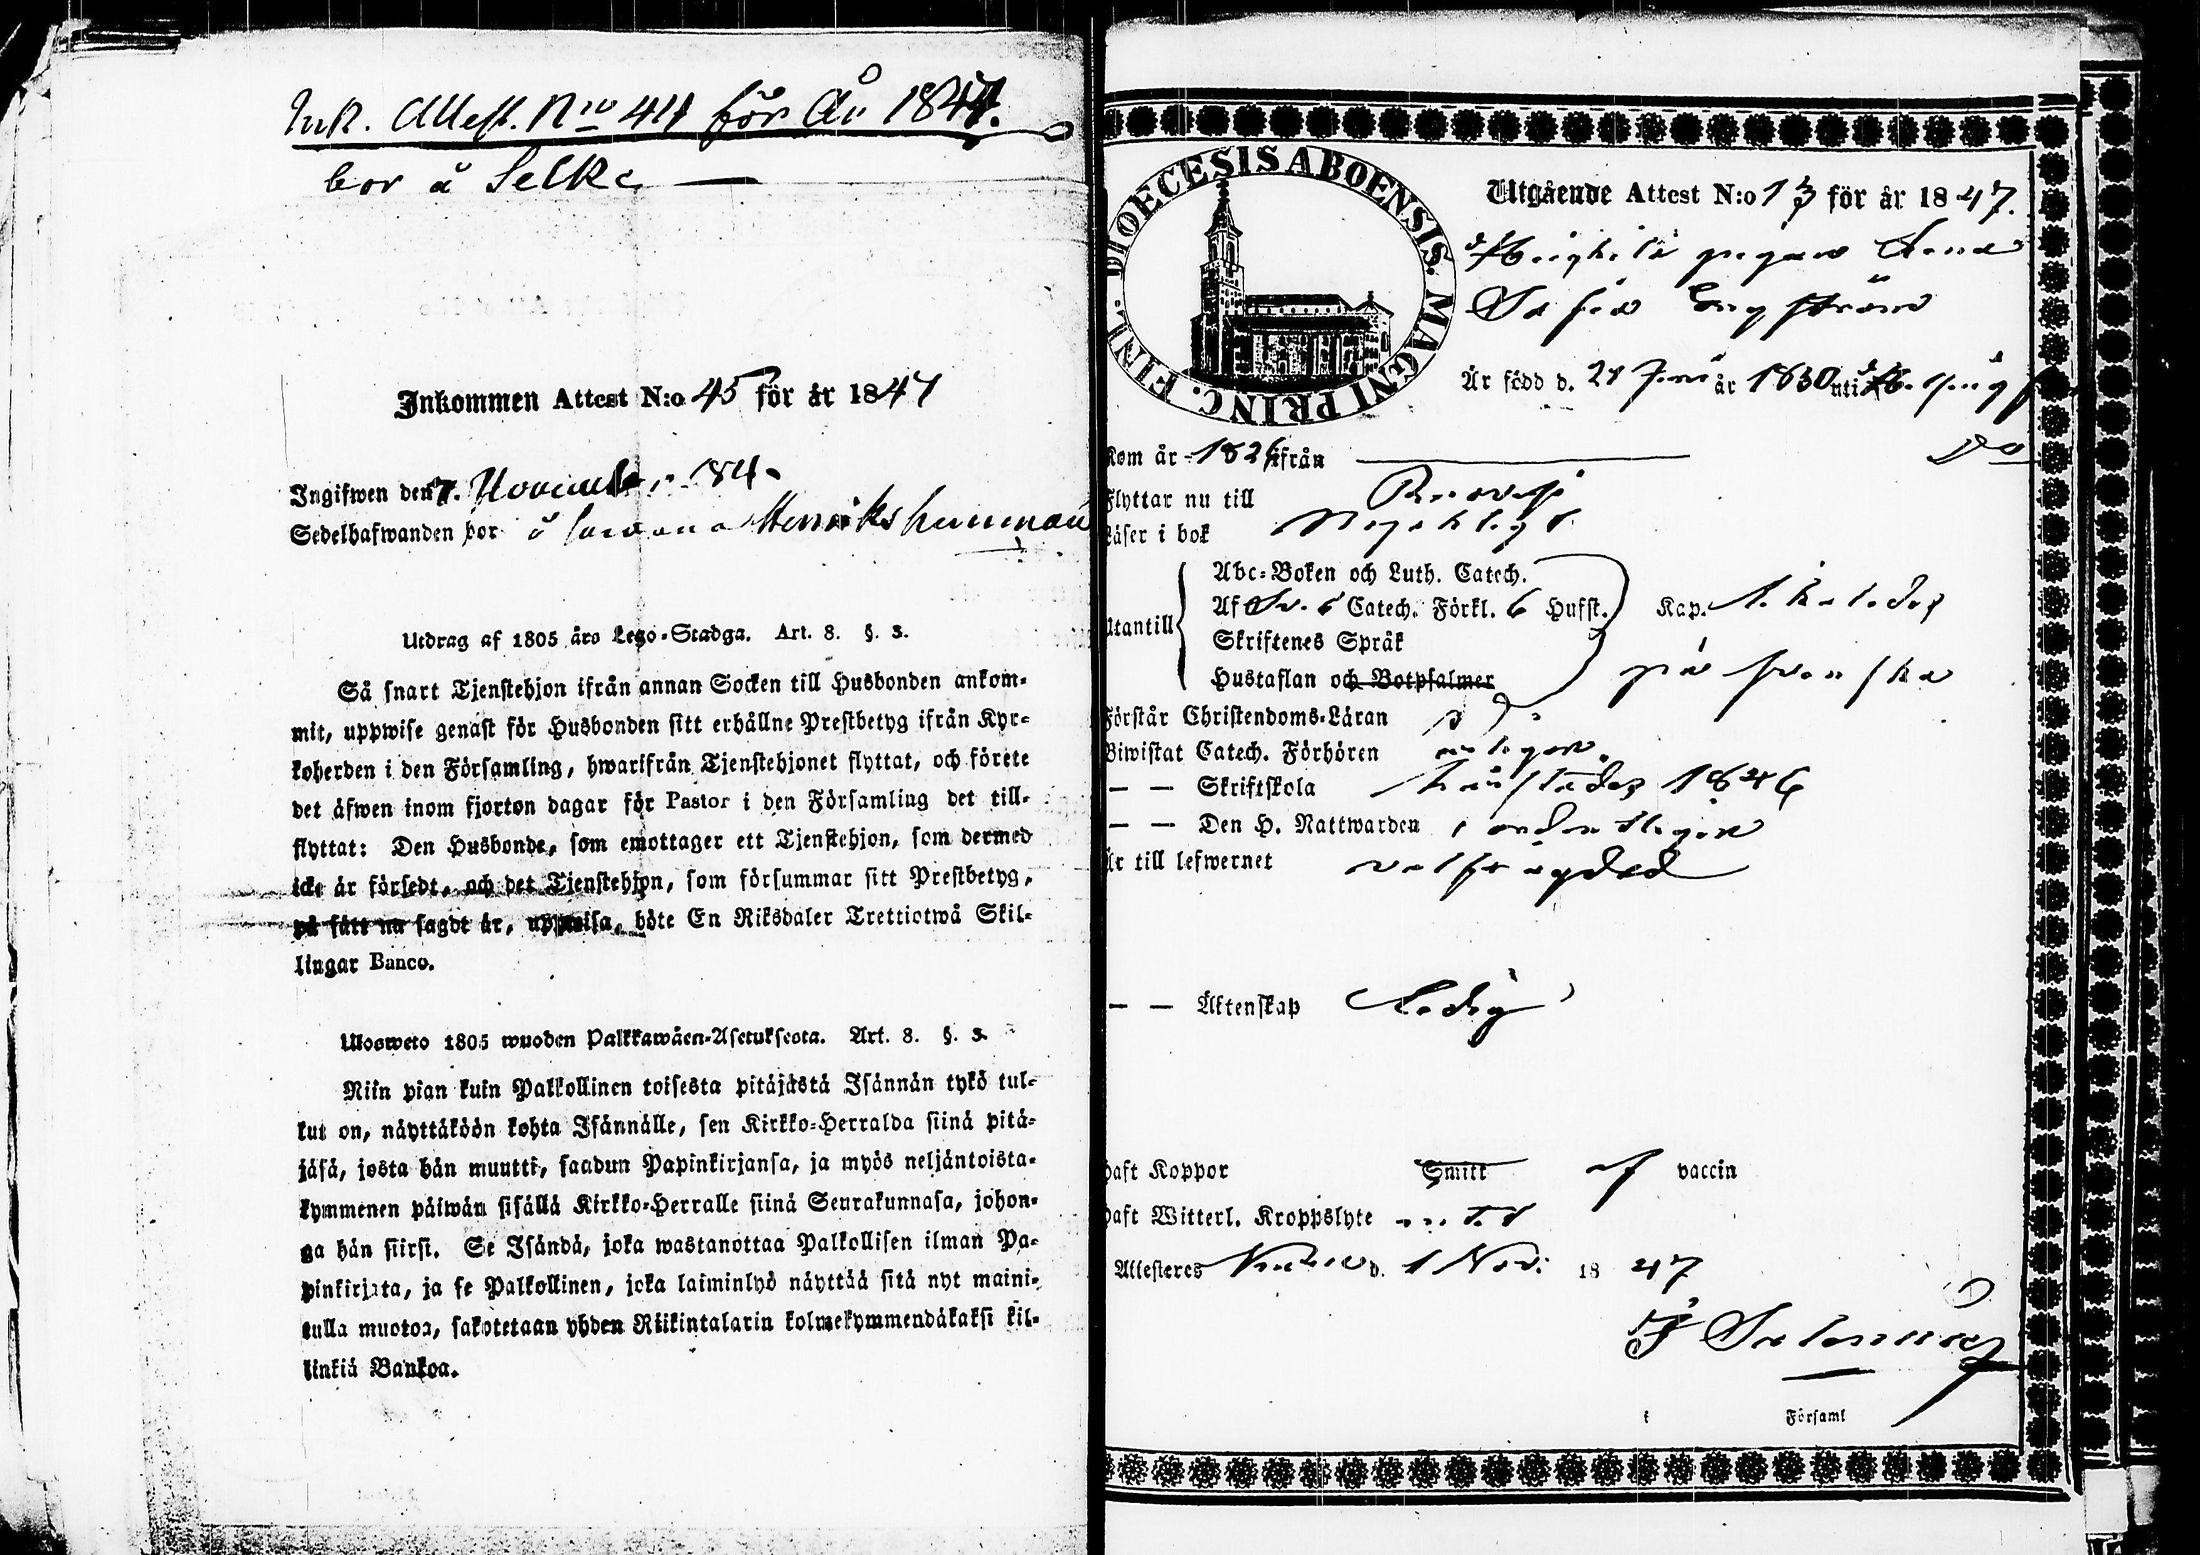 Ink. Attest. Nro 44 för År 1847.
bor å Selke
Inkommen Attest N:o 45 för år 1847
Ingifwen den 7. November 184
Sedelhafwanden bor å Henriks hemman
Utdrag af 1805 års Lego-Stadga. Art. 8. §. 3.
Så snart Tjenstehjon ifrån annan Socken till Husbonden ankom-
mit, uppwise genast för Husbonden sitt erhållne Prestbetyg ifrån Kyr-
koherden i den Församling, hwarifrån Tjenstehjonet flyttat, och förete
det äfwen inom fjorton dagar för Pastor i den Församling det till-
flyttat: Den Husbonde, som emottager ett Tjenstehjon, som dermed
icke är försedt, och det Tjenstehjon, som försummar sitt Prestbetyg,
på sätt nu sagdt är, uppwisa, böte En Riksdaler Trettiotwå Skil-
lingar Banco.
Ulosweto 1805 wuoden Palkkawäen-Asetuksesta. Art. 8. §. 3.
Niin pian kuin Palkollinen toisesta pitäjästä Isännän tykö tul-
lut on, näyttäköön kohta Isännälle, sen Kirkko-Herralda siinä pitä-
jäsä, josta hän muutti, saadun Papinkirjansa, ja myös neljäntoista-
kymmenen päiwän sisällä Kirkko-Herralle siinä Seurakunnasa, johon-
ga hän siirsi. Se Isändä, joka wastanottaa Palkollisen ilman Pa-
pinkirjata, ja se Palkollinen, joka laiminlyö näyttää sitä nyt maini-
tulla muotoa, sakotetaan yhden Riikintalarin kolmekymmendäkaksi kil-
linkiä Bankoa.
DIOECESIS ABOENSIS. MAGNI PRINC. FINL.
Utgående Attest N:o 13 för år 1847.
pigan Anna
Sofia Engström
Är född d. 21 Juni år 1830 uti
Kom år 182 ifrån
Do
Flyttar nu till
Läser i bok Nöjaktigt
Utantill
Abc-Boken och Luth. Catech.
Af Sv. s Catech. Förkl. 6 Hufst. Kap.
Skriftenes Språk
Hustaflan och Botpsalmer
på svenska
Förstår Christendoms-Läran
Biwistat Catech. Förhören
— — Skriftskola 1846
— — Den H. Nattwarden ordentligen
Är till lefwernet välfrägdad
— — Äktenskap Ledig
Haft Koppor Smitt af vaccin
Haft Witterl. Kroppslyte
Attesteres d. 1 Nov. 1847
F Salonius
i Församl